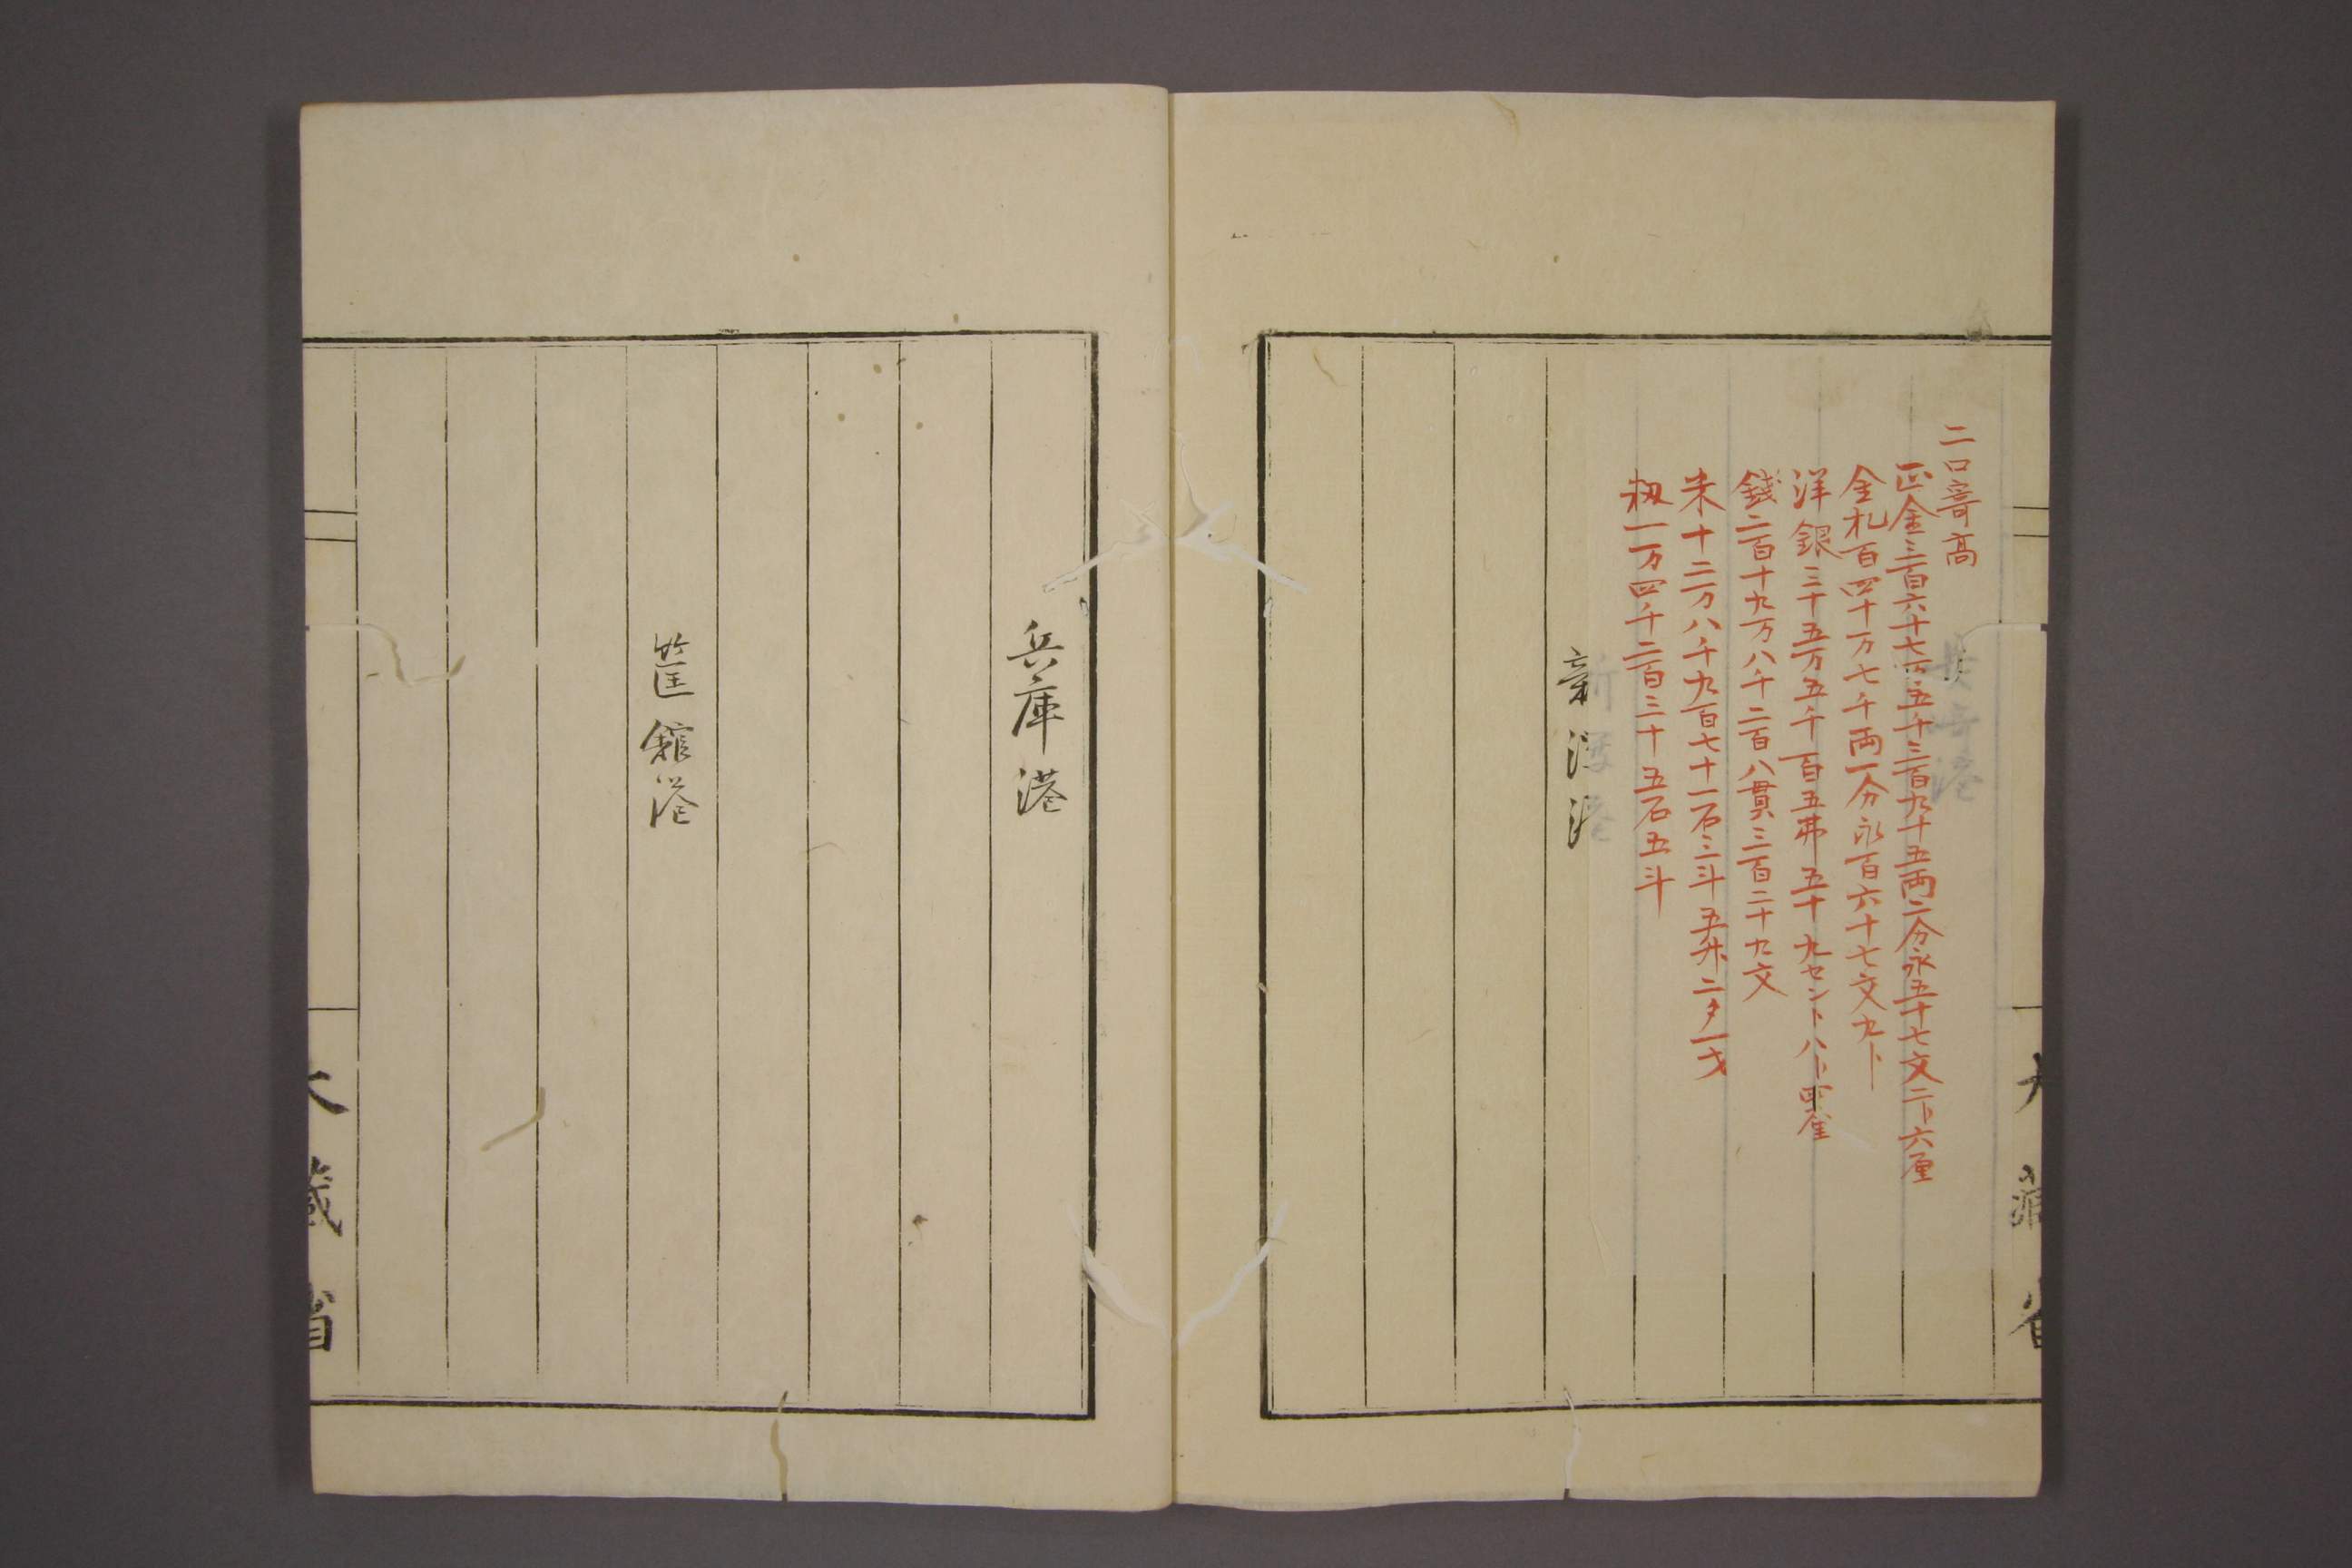 大藏省
二口寄高
正金三百六十七万五千三百九十五両二分永五十七文二卜六厘
金札百四十万七千両一分永百六十七文九卜
洋銀三十五万五千百五弗五十九セント八卜四厘
錢二百十九万八千二百八貫三百二十九文
米十二万八千九百七十一石三斗五升二夕一才
籾一万四千二百三十五石五斗
新潟港
兵庫港
筐館港
大藏省